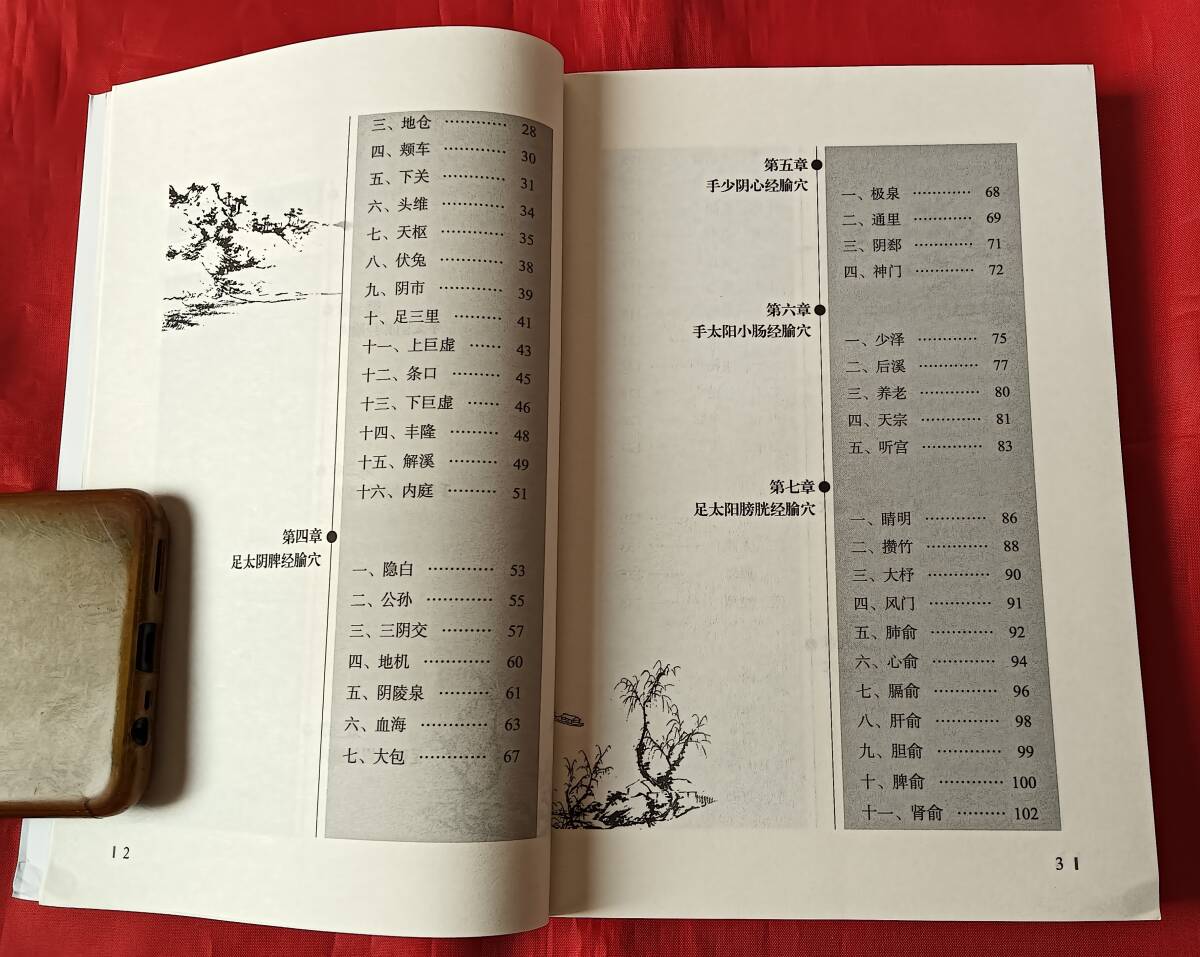 三、地仓 ………… 28
四、颊车 ………… 30
五、下关 ………… 31
六、头维 ………… 34
七、天枢 ………… 35
八、伏兔 ………… 38
九、阴市 ………… 39
十、足三里 ……… 41
十一、上巨虚 …… 43
十二、条口 ……… 45
十三、下巨虚 …… 46
十四、丰隆 ……… 48
十五、解溪 ……… 49
十六、内庭 ……… 51
第四章
足太阴脾经腧穴
一、隐白 ………… 53
二、公孙 ………… 55
三、三阴交 ……… 57
四、地机 ………… 60
五、阴陵泉 ……… 61
六、血海 ………… 63
七、大包 ………… 67
2
第五章
手少阴心经腧穴
一、极泉 ………… 68
二、通里 ………… 69
三、阴郄 ………… 71
四、神门 ………… 72
第六章
手太阳小肠经腧穴
一、少泽 ………… 75
二、后溪 ………… 77
三、养老 ………… 80
四、天宗 ………… 81
五、听宫 ………… 83
第七章
足太阳膀胱经腧穴
一、睛明 ………… 86
二、攒竹 ………… 88
三、大杼 ………… 90
四、风门 ………… 91
五、肺俞 ………… 92
六、心俞 ………… 94
七、膈俞 ………… 96
八、肝俞 ………… 98
九、胆俞 ………… 99
十、脾俞 ………… 100
十一、肾俞 ……… 102
3